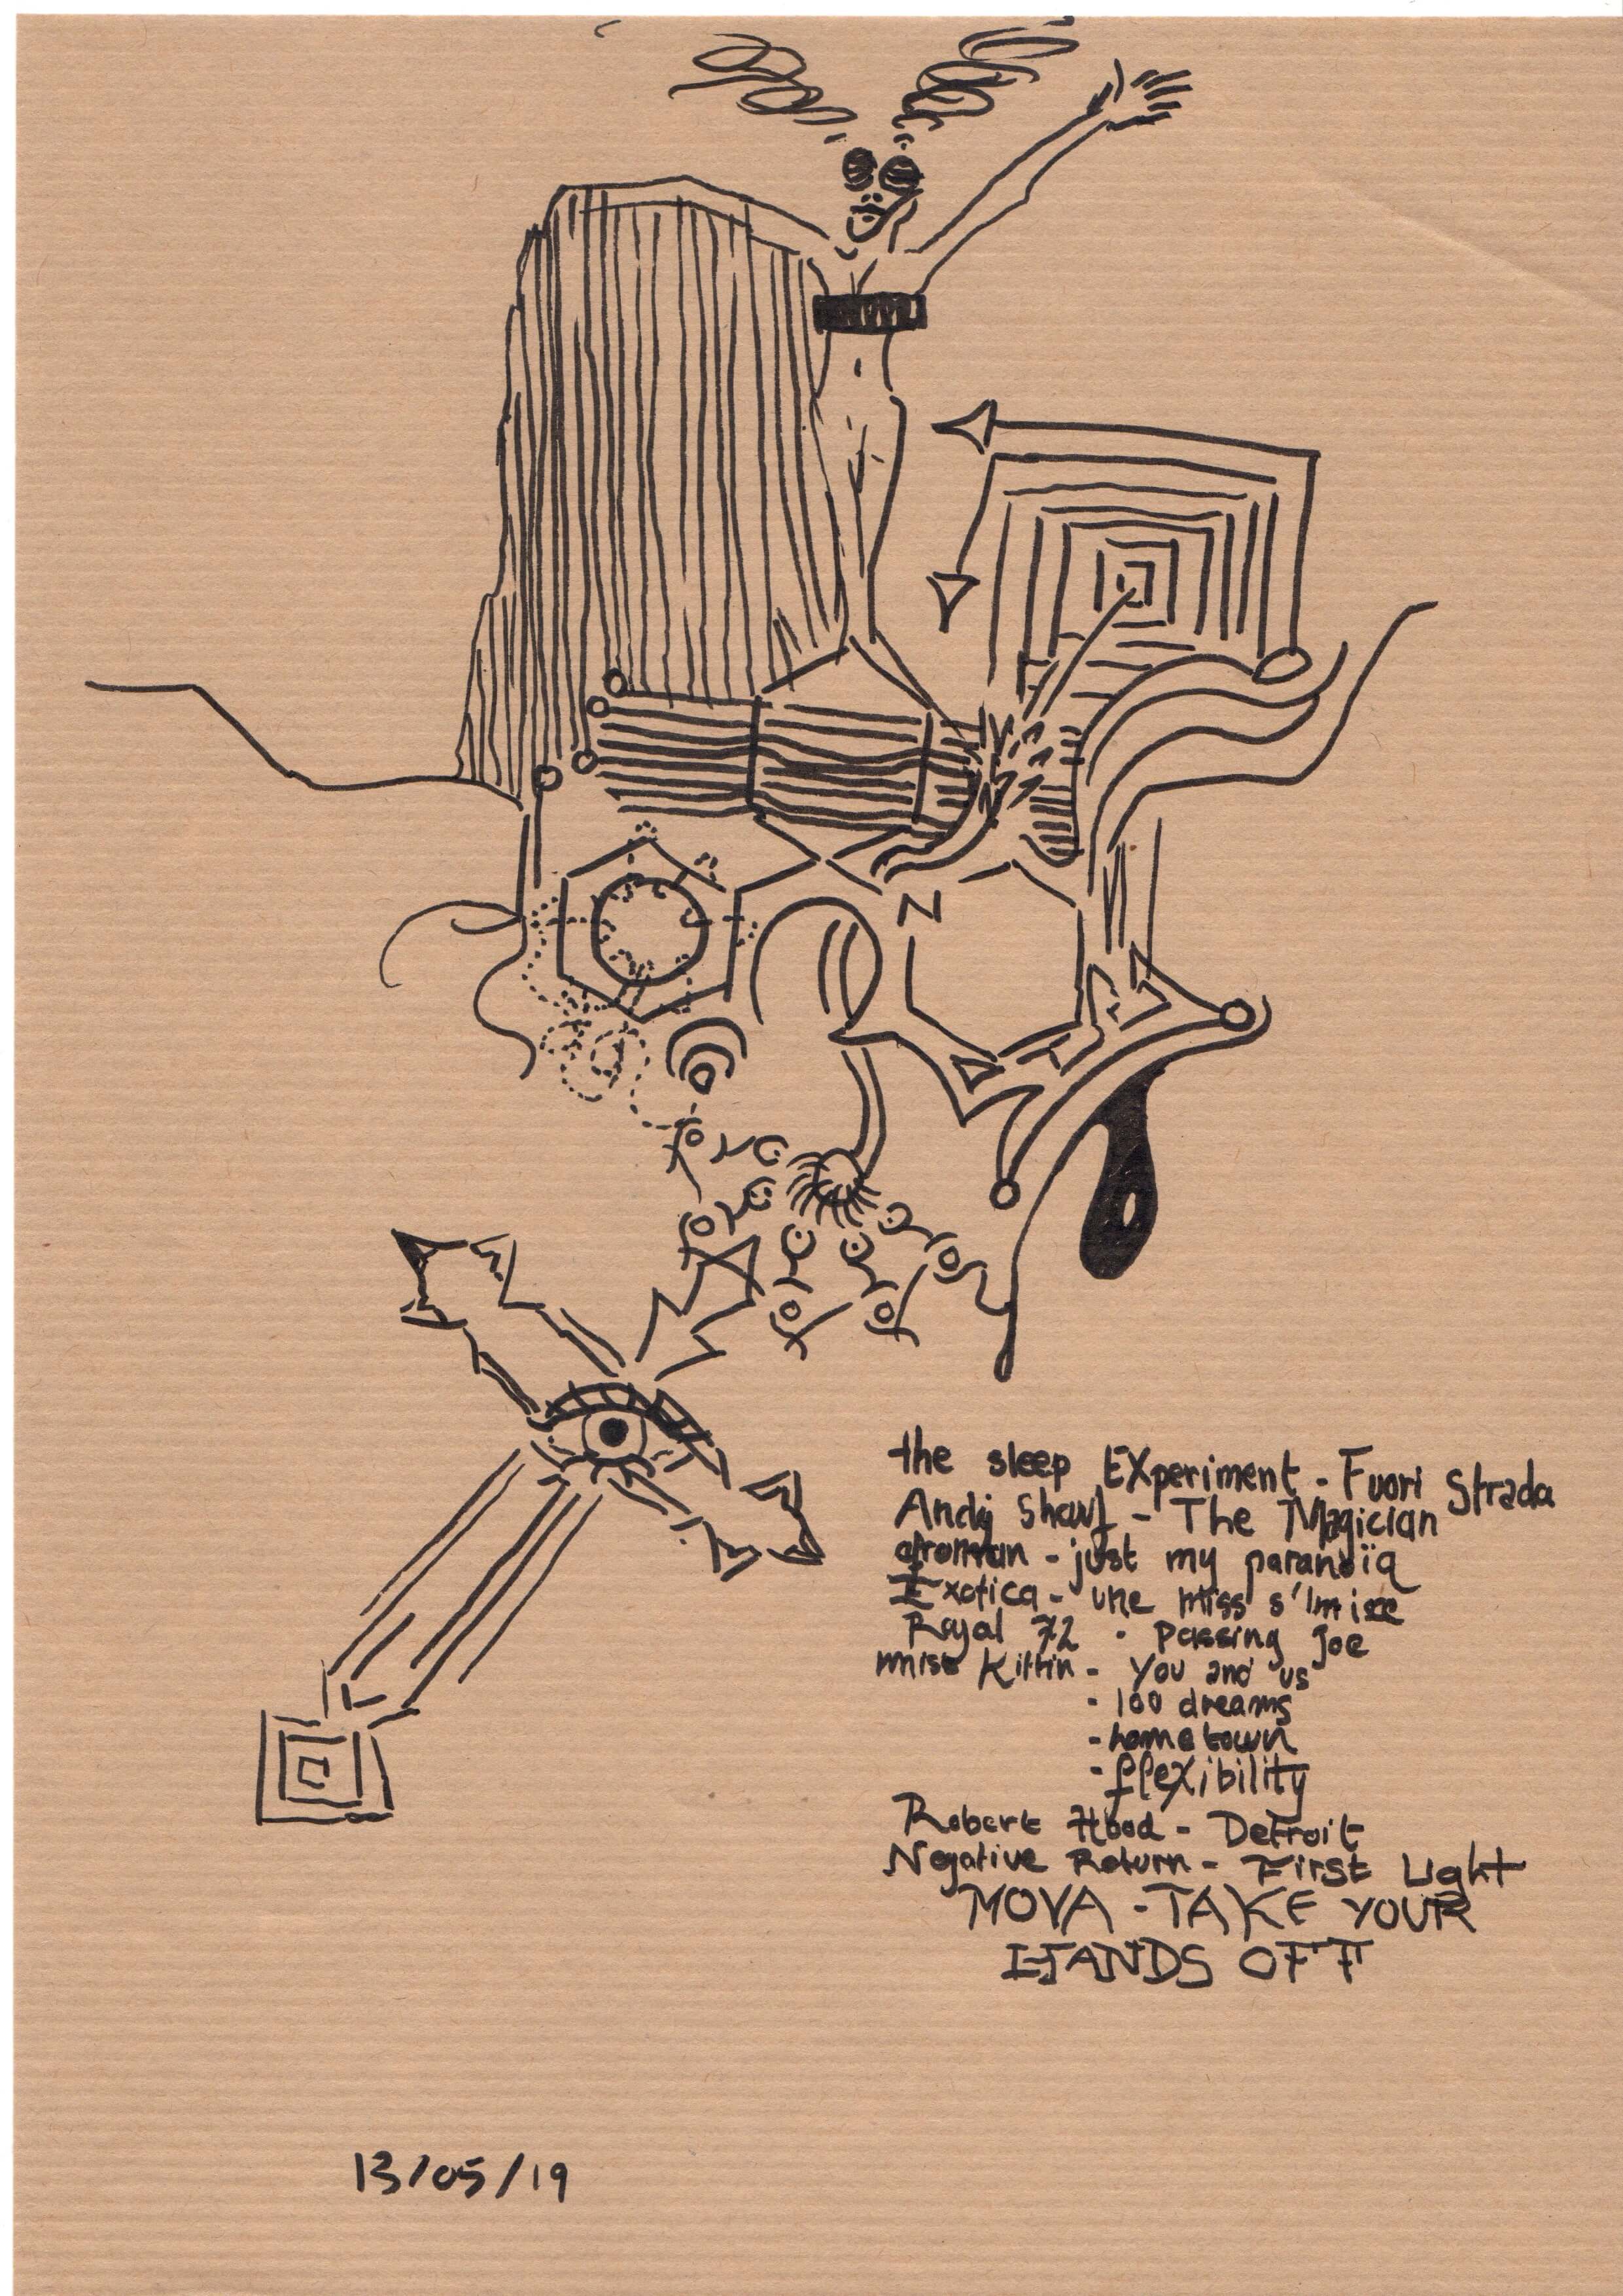 N
the sleep Experiment - Fuori Strada
Andy Shauf - The Magician
afroman - just my paranoïa
Exotica - une miss s'immisce
Royal 72 - passing joe
miss Kittin - You and us
- 100 dreams
- hometown
- flexibility
Robert Hood - Detroit
Negative Return - First Light
MOVA - TAKE YOUR
HANDS OFF
13/05/19